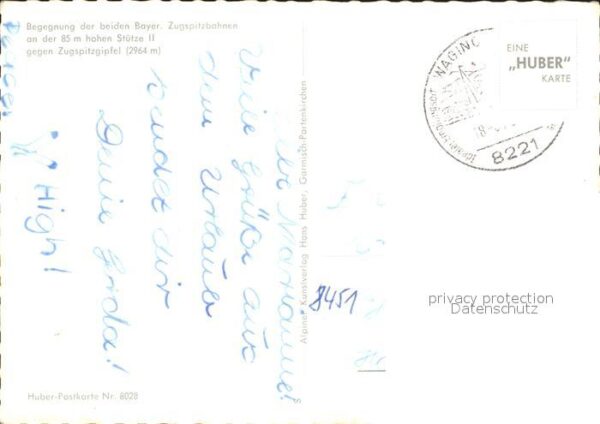 Begegnung der beiden Bayer. Zugspitzbahnen
an der 85 m hohen Stütze II
gegen Zugspitzgipfel (2964 m)
Viele Grüße aus
dem Urlaub
sendet dir
Deine Gerda!
High!
Alpiner Kunstverlag Hans Huber, Garmisch-Partenkirchen
8451
WAGING
8221
EINE
„HUBER"
KARTE
privacy protection
Datenschutz
Huber-Postkarte Nr. 8028